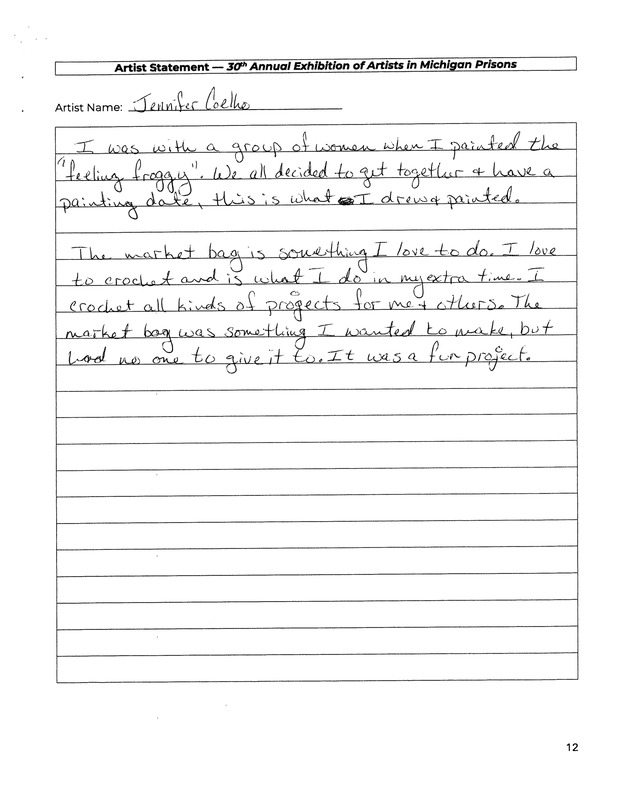 Artist Statement — 30th Annual Exhibition of Artists in Michigan Prisons
Artist Name: Jennifer Coelho
I was with a group of women when I painted the
"feeling froggy". We all decided to get together & have a
painting date, this is what I drew & painted.
The market bag is something I love to do. I love
to crochet and is what I do in my extra time. I
crochet all kinds of projects for me & others. The
market bag was something I wanted to make, but
had no one to give it to. It was a fun project.
12